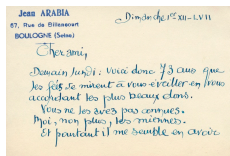 Jean ARABIA
67, Rue de Billancourt
BOULOGNE (Seine)
Dimanche 1er XII-LVII
Cher ami,
Demain lundi : voici donc 73 ans que
les fées se mirent à vous éveiller en vous
accordant les plus beaux dons.
Vous ne les avez pas connues.
Moi, non plus, les miennes.
Et pourtant il me semble en avoir